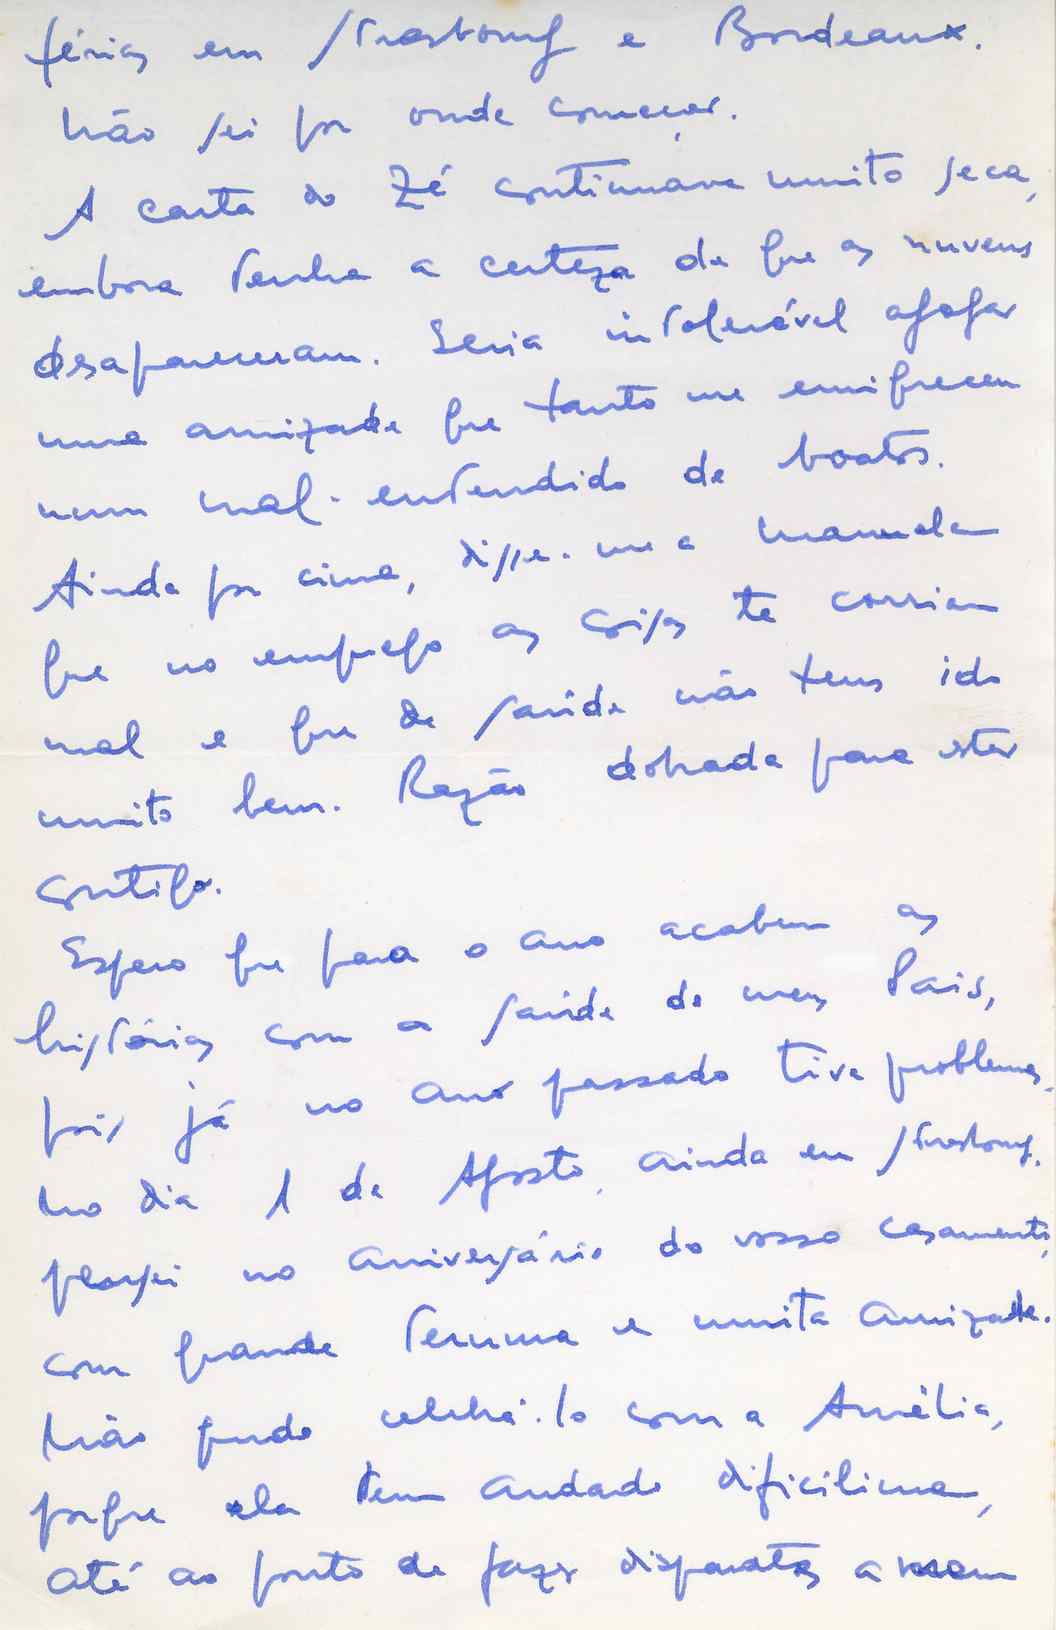 férias em Strasbourg e Bordeaux.
Não sei por onde começar.
A carta do Zé continuava muito seca,
embora tenha a certeza de que as nuvens
desapareceram. Seria intolerável afogar
uma amizade que tanto me enriqueceu
num mal-entendido de boatos.
Ainda por cima, disse-me a Manuela
que no emprego as coisas te corriam
mal e que de saúde não tens ido
muito bem. Razão dobrada para estar
contigo.
Espero que para o ano acabem as
histórias com a saúde de meus Pais,
pois já no ano passado tive problemas.
No dia 1 de Agosto, ainda em Strasbourg,
pensei no aniversário do vosso casamento,
com grande ternura e muita amizade.
Não pude celebrá-lo com a Amélia,
porque ela tem andado dificílima,
até ao ponto de fazer disparates a